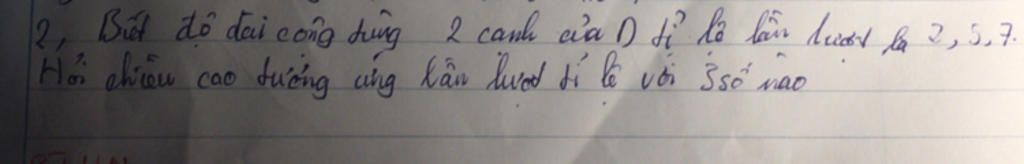 2, Biết độ dài công từng 2 cạnh của D tỉ lệ lần lượt là 2, 5, 7.
Hỏi chiều cao tương ứng lần lượt tỉ lệ với 3 số nào